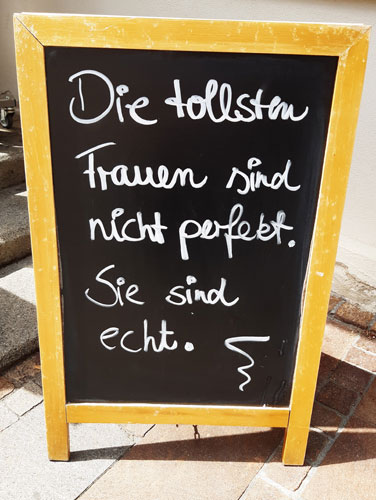 Die tollsten
Frauen sind
nicht perfekt.
Sie sind
echt.